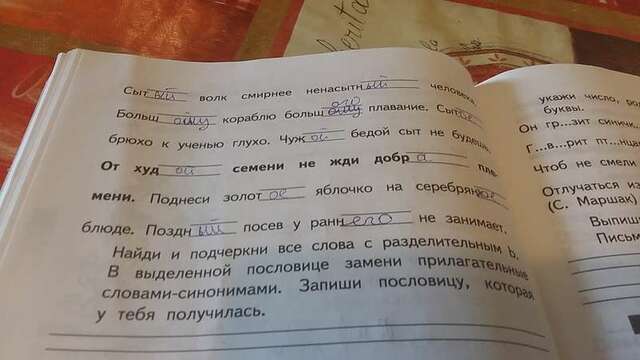 Сытый волк смирнее ненасытный человека
Большому кораблю большого плавание. Сытое
брюхо к ученью глухо. Чужой бедой сыт не будешь
От худой семени не жди добра пле-
мени. Поднеси золотое яблочко на серебряное
блюде. Поздный посев у раннего не занимает.
Найди и подчеркни все слова с разделительным ь.
В выделенной пословице замени прилагательные
словами-синонимами. Запиши пословицу, которая
у тебя получилась.
укажи число, ро
буквы.
Он гр...зит синичк
Г...в...рит пт...нца
Чтоб не смели
Отлучаться из
(С. Маршак)
Выпиш
Письм